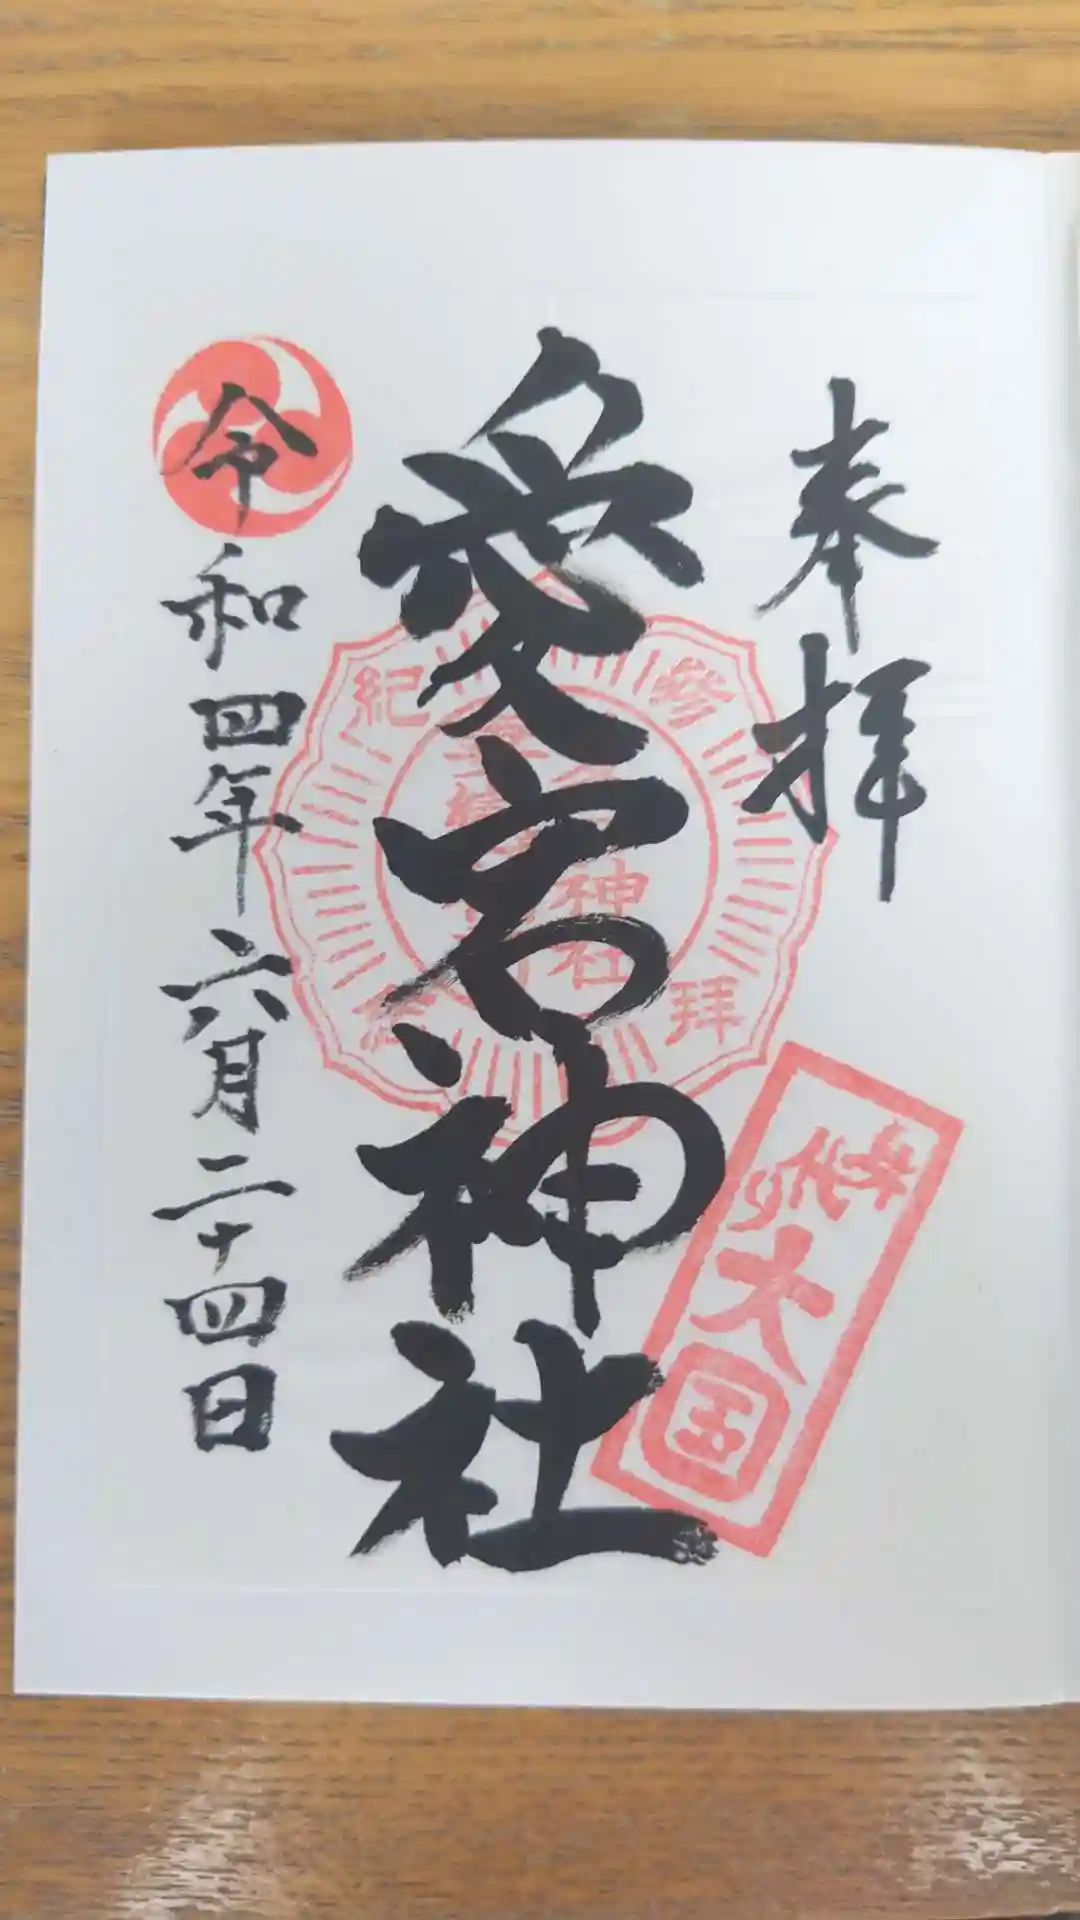 奉拝
愛宕神社
令和四年六月二十四日
参拝
紀念
神社
大国